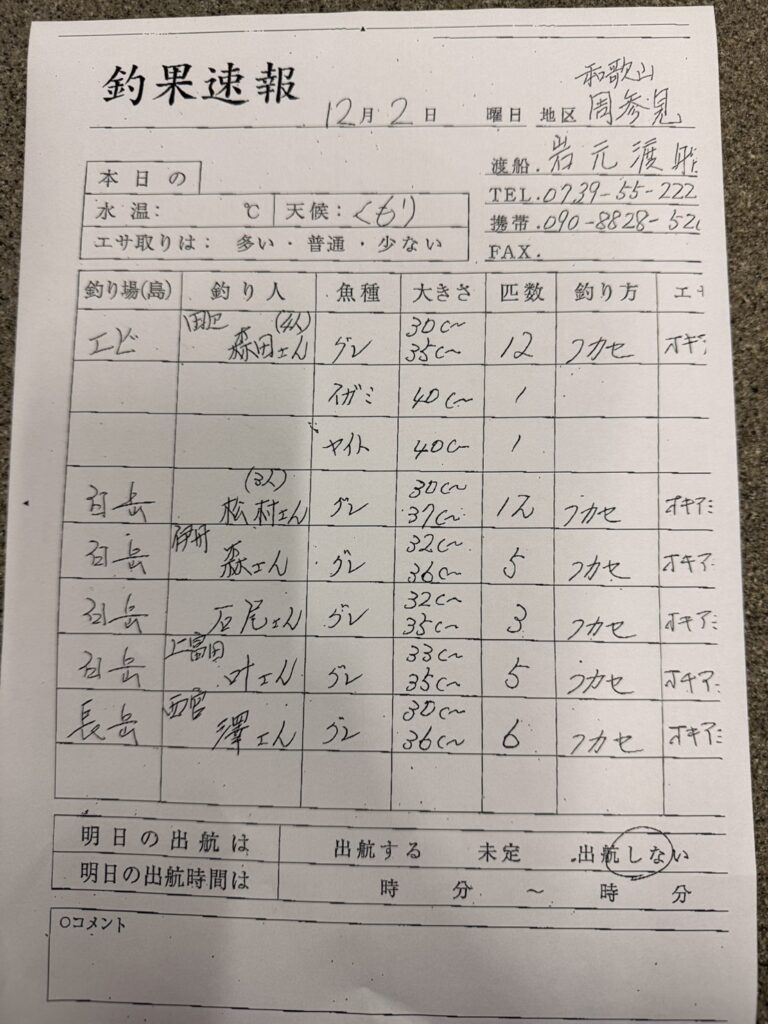 釣果速報
12月2日 曜日 地区 和歌山 周参見
渡船. 岩元渡船
TEL.0739-55-222
携帯.090-8828-520
FAX.
本日の
水温: ℃ 天候: くもり
エサ取りは: 多い・普通・少ない
釣り場(島) 釣り人 魚種 大きさ 匹数 釣り方 エサ
エビ 田辺 森田さん グレ 30㎝ 35㎝ 12 フカセ オキア
イガミ 40㎝ 1
ヤイト 40㎝ 1
(3人) 松村さん グレ 30㎝ 37㎝ 12 フカセ オキアミ
伊丹 森さん グレ 32㎝ 36㎝ 5 フカセ オキアミ
石尾さん グレ 32㎝ 35㎝ 3 フカセ オキアミ
上富田 叶さん グレ 33㎝ 35㎝ 5 フカセ オキアミ
長岳 西宮 澤さん グレ 30㎝ 36㎝ 6 フカセ オキアミ
明日の出航は 出航する 未定 出航しない
明日の出航時間は 時 分 ～ 時 分
○コメント